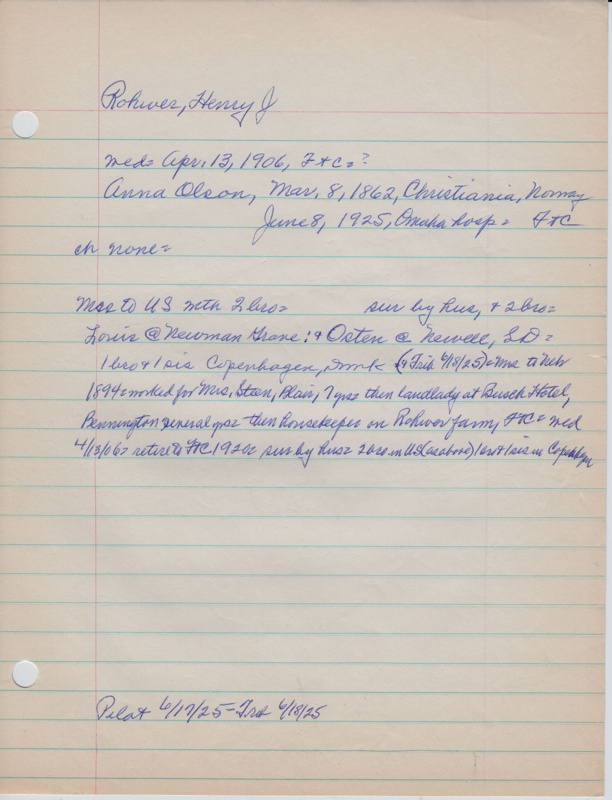 Rohwer, Henry J
wed= Apr. 13, 1906, Ft C= ?
Anna Olson, Mar. 8, 1862, Christiania, Norway
June 8, 1925, Omaha hosp= Ft C
ch none=
Mcs to US with 2 bro= sur by hus, + 2 bro=
Louis @ Newman Grove: + Osten @ Newell, SD=
1 bro + 1 sis Copenhagen, Dmk (4 Trib 6/18/25)= to Neb
1894= worked for Mrs. Blair, 7 yrs= then landlady at Busch Hotel,
Bennington several yrs= then housekeeper on Rohwer farm, Ft C= wed
4/13/06= retire to Ft C 1920= sur by hus= 2 bro in US (as above) 1 bro + 1 sis in Copenhagen
Pilot 6/17/25 - Trib 6/18/25